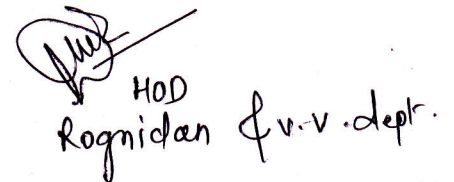 HOD
Rognidan & v.v. dept.